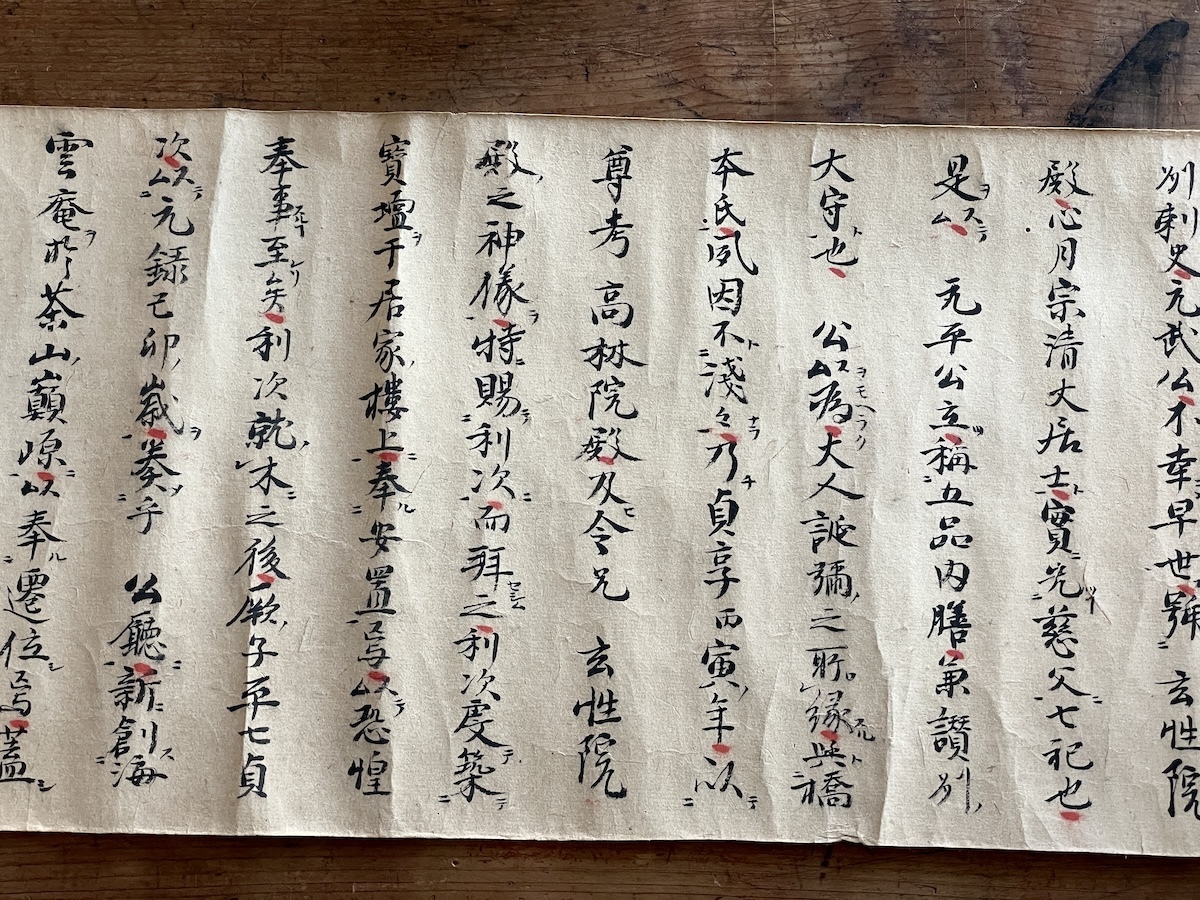 州刺史元武公不幸早世號 玄性院
殿心月宗清丈居士實先慈父七祀也
是 元平公立稱五品内膳兼讃州
大守也 公以為大人誕彌之所緣與橋
本氏夙因不淺々乃貞享丙寅年以
尊考 高林院殿及令兄 玄性院
殿之神像特賜利次而拜之利次度築
寶壇于居家樓上奉安置焉以恐惶
奉事至矣利次就木之後厥子平七貞
次以元録己卯歳奏乎 公聽新創海
雲庵於茶山巔原以奉遷位焉蓋